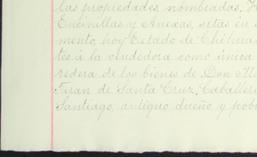 las propiedades nombradas,
Encinillas y Anexas, sitas en
mento, hoy Estado de Chihua
tes á la vendedora como única
redera de los bienes de Don
Firan de Santa Cruz, Caballer
Santiago, antiguo dueño y pobl